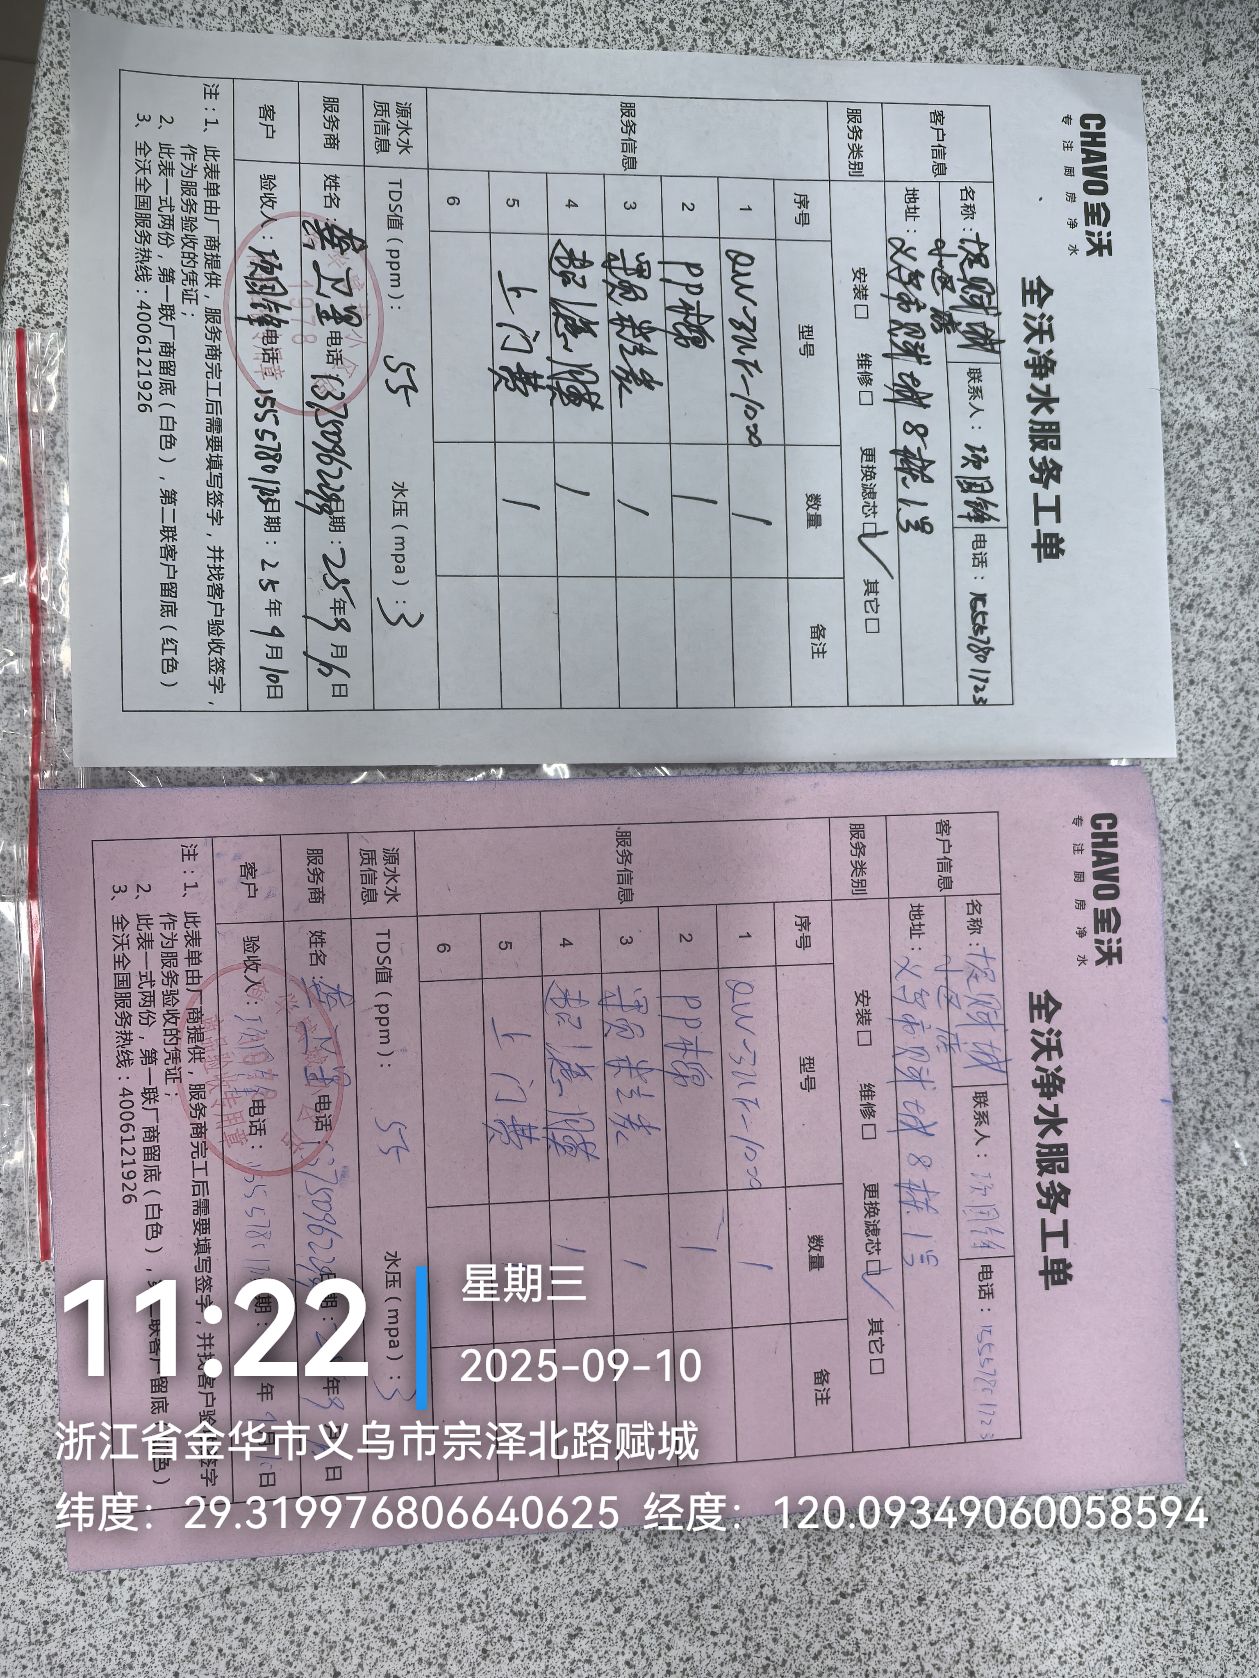 CHAVO 全沃
专注厨房净水
全沃净水服务工单
客户信息
名称：赋城
小区店
联系人：
电话：15557801723
地址：义乌市赋城8栋1号
服务类别
安装□ 维修□ 更换滤芯□✓ 其它□
服务信息
序号 型号 数量 备注
1 1
2 PP棉 1
3 1
4 超滤膜 1
5 上门费 1
6
源水水质信息
TDS值（ppm）：55 水压（mpa）：3
服务商 姓名： 电话：13750962298 日期：25年9月10日
客户 验收人： 电话：15557801723 日期：25年9月10日
注：1、此表单由厂商提供，服务商完工后需要填写签字，并找客户验收签字，
作为服务验收的凭证；
2、此表一式两份，第一联厂商留底（白色），第二联客户留底（红色）
3、全沃全国服务热线：4006121926
CHAVO 全沃
专注厨房净水
全沃净水服务工单
客户信息
名称：赋城
小区店
联系人：
电话：15557801723
地址：义乌市赋城8栋1号
服务类别
安装□ 维修□ 更换滤芯□✓ 其它□
服务信息
序号 型号 数量 备注
1 1
2 PP棉 1
3 1
4 超滤膜 1
5 上门费
6
源水水质信息
TDS值（ppm）：55 水压（mpa）：3
服务商 姓名： 电话：13750962298
客户 验收人： 电话：
注：1、此表单由厂商提供，服务商完工后需要填写签字，并找客户验收签字
作为服务验收的凭证；
2、此表一式两份，第一联厂商留底（白色），
3、全沃全国服务热线：4006121926
11:22
星期三
2025-09-10
浙江省金华市义乌市宗泽北路赋城
纬度：29.319976806640625 经度：120.09349060058594